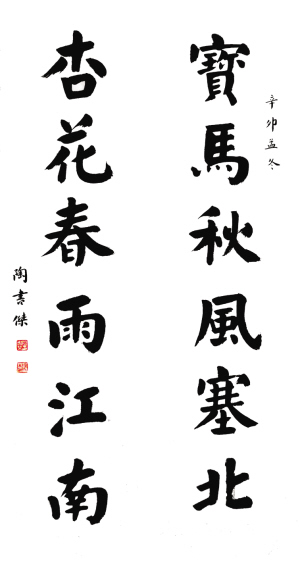 辛卯孟冬
寶馬秋風塞北
杏花春雨江南
陶書傑